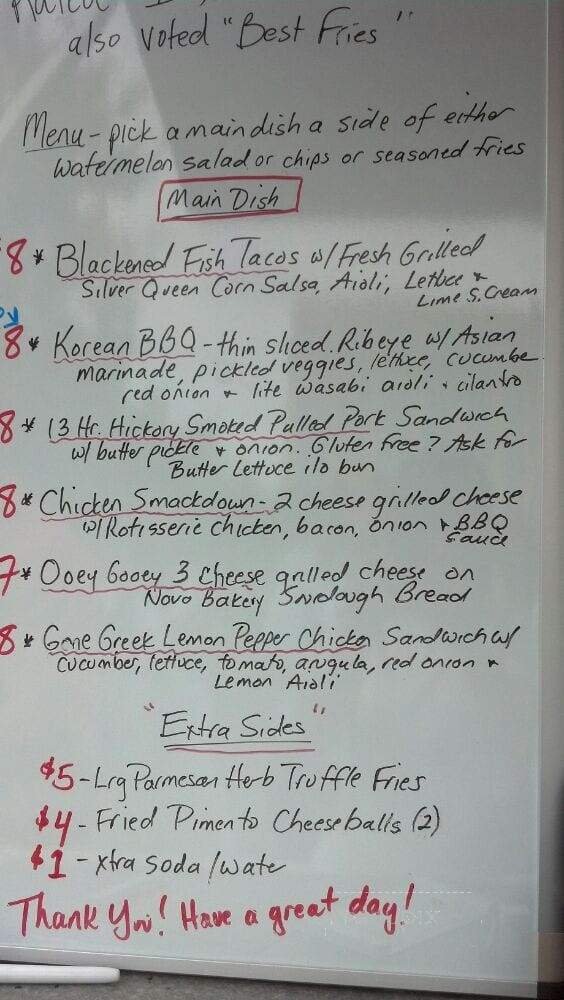 also voted "Best Fries"
Menu - pick a main dish a side of either
watermelon salad or chips or seasoned fries
Main Dish
8 * Blackened Fish Tacos w/ Fresh Grilled
Silver Queen Corn Salsa, Aioli, Lettuce &
Lime S. Cream
8 * Korean BBQ - thin sliced Ribeye w/ Asian
marinade, pickled veggies, lettuce, cucumbe
red onion & lite wasabi aioli & cilantro
8 * 13 Hr. Hickory Smoked Pulled Pork Sandwich
w/ butter pickle & onion. Gluten free? Ask for
Butter Lettuce ilo bun
8 * Chicken Smackdown - 2 cheese grilled cheese
w/ Rotisserie chicken, bacon, onion & BBQ
sauce
7 * Ooey Gooey 3 Cheese grilled cheese on
Novo Bakery Sourdough Bread
8 * Gone Greek Lemon Pepper Chicken Sandwich w/
cucumber, lettuce, tomato, arugula, red onion &
Lemon Aioli
"Extra Sides"
$5 - Lrg Parmesan Herb Truffle Fries
$4 - Fried Pimento Cheeseballs (2)
$1 - xtra soda/water
Thank You! Have a great day!